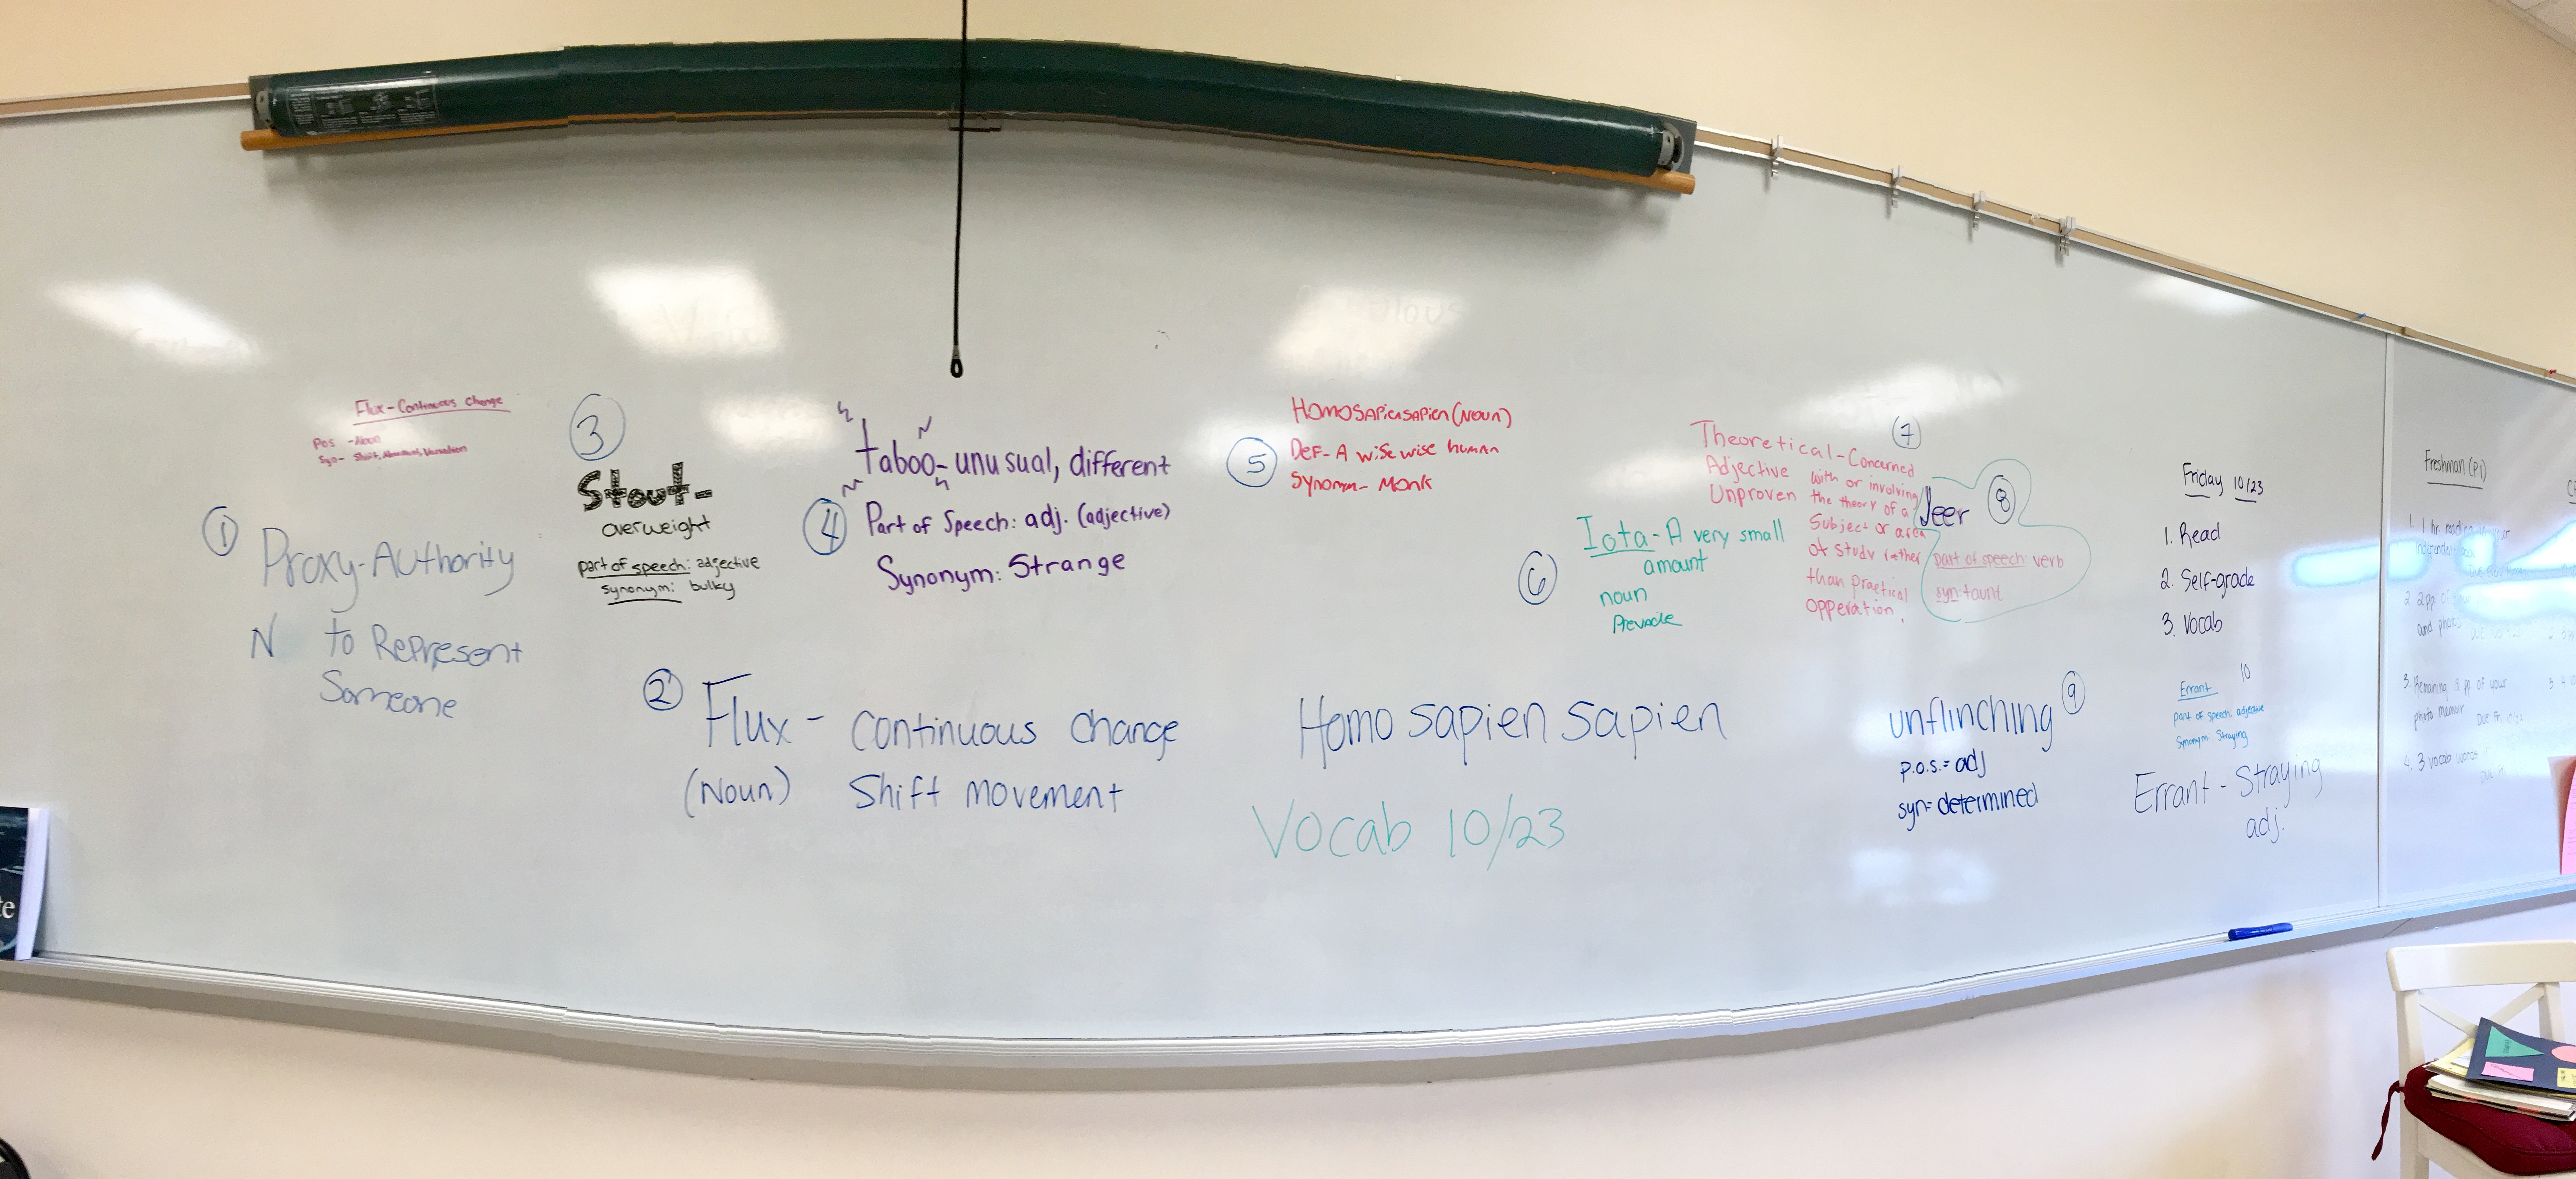 Flux-Continuous change
Pos -Noun
Syn- Shift,
1
Proxy-Authority
N to Represent
Someone
3
Stout-
overweight
part of speech: adjective
synonym: bulky
4
taboo-unusual, different
Part of Speech: adj. (adjective)
Synonym: Strange
2
Flux- continuous change
(Noun) Shift movement
5
Homosapiensapien (Noun)
Def- A wise wise human
Synonym- Monk
Homo sapien sapien
Vocab 10/23
6
Iota-A very small
amount
noun
7
Theoretical-Concerned
Adjective with or involving
Unproven the theory of a
Subject or area
of study rather
than practical
opperation.
Jeer 8
part of speech: verb
syn: taunt
unflinching 9
p.o.s.= adj
syn= determined
Friday 10/23
1. Read
2. Self-grade
3. Vocab
10
Errant
part of speech: adjective
Synonym: Straying
Errant - Straying
adj.
Freshman (P1)
1. 1 hr. reading your
2. 2 pp.
and photo
3. Remaining pp of your
photo memoir
4. 3 vocab words
te